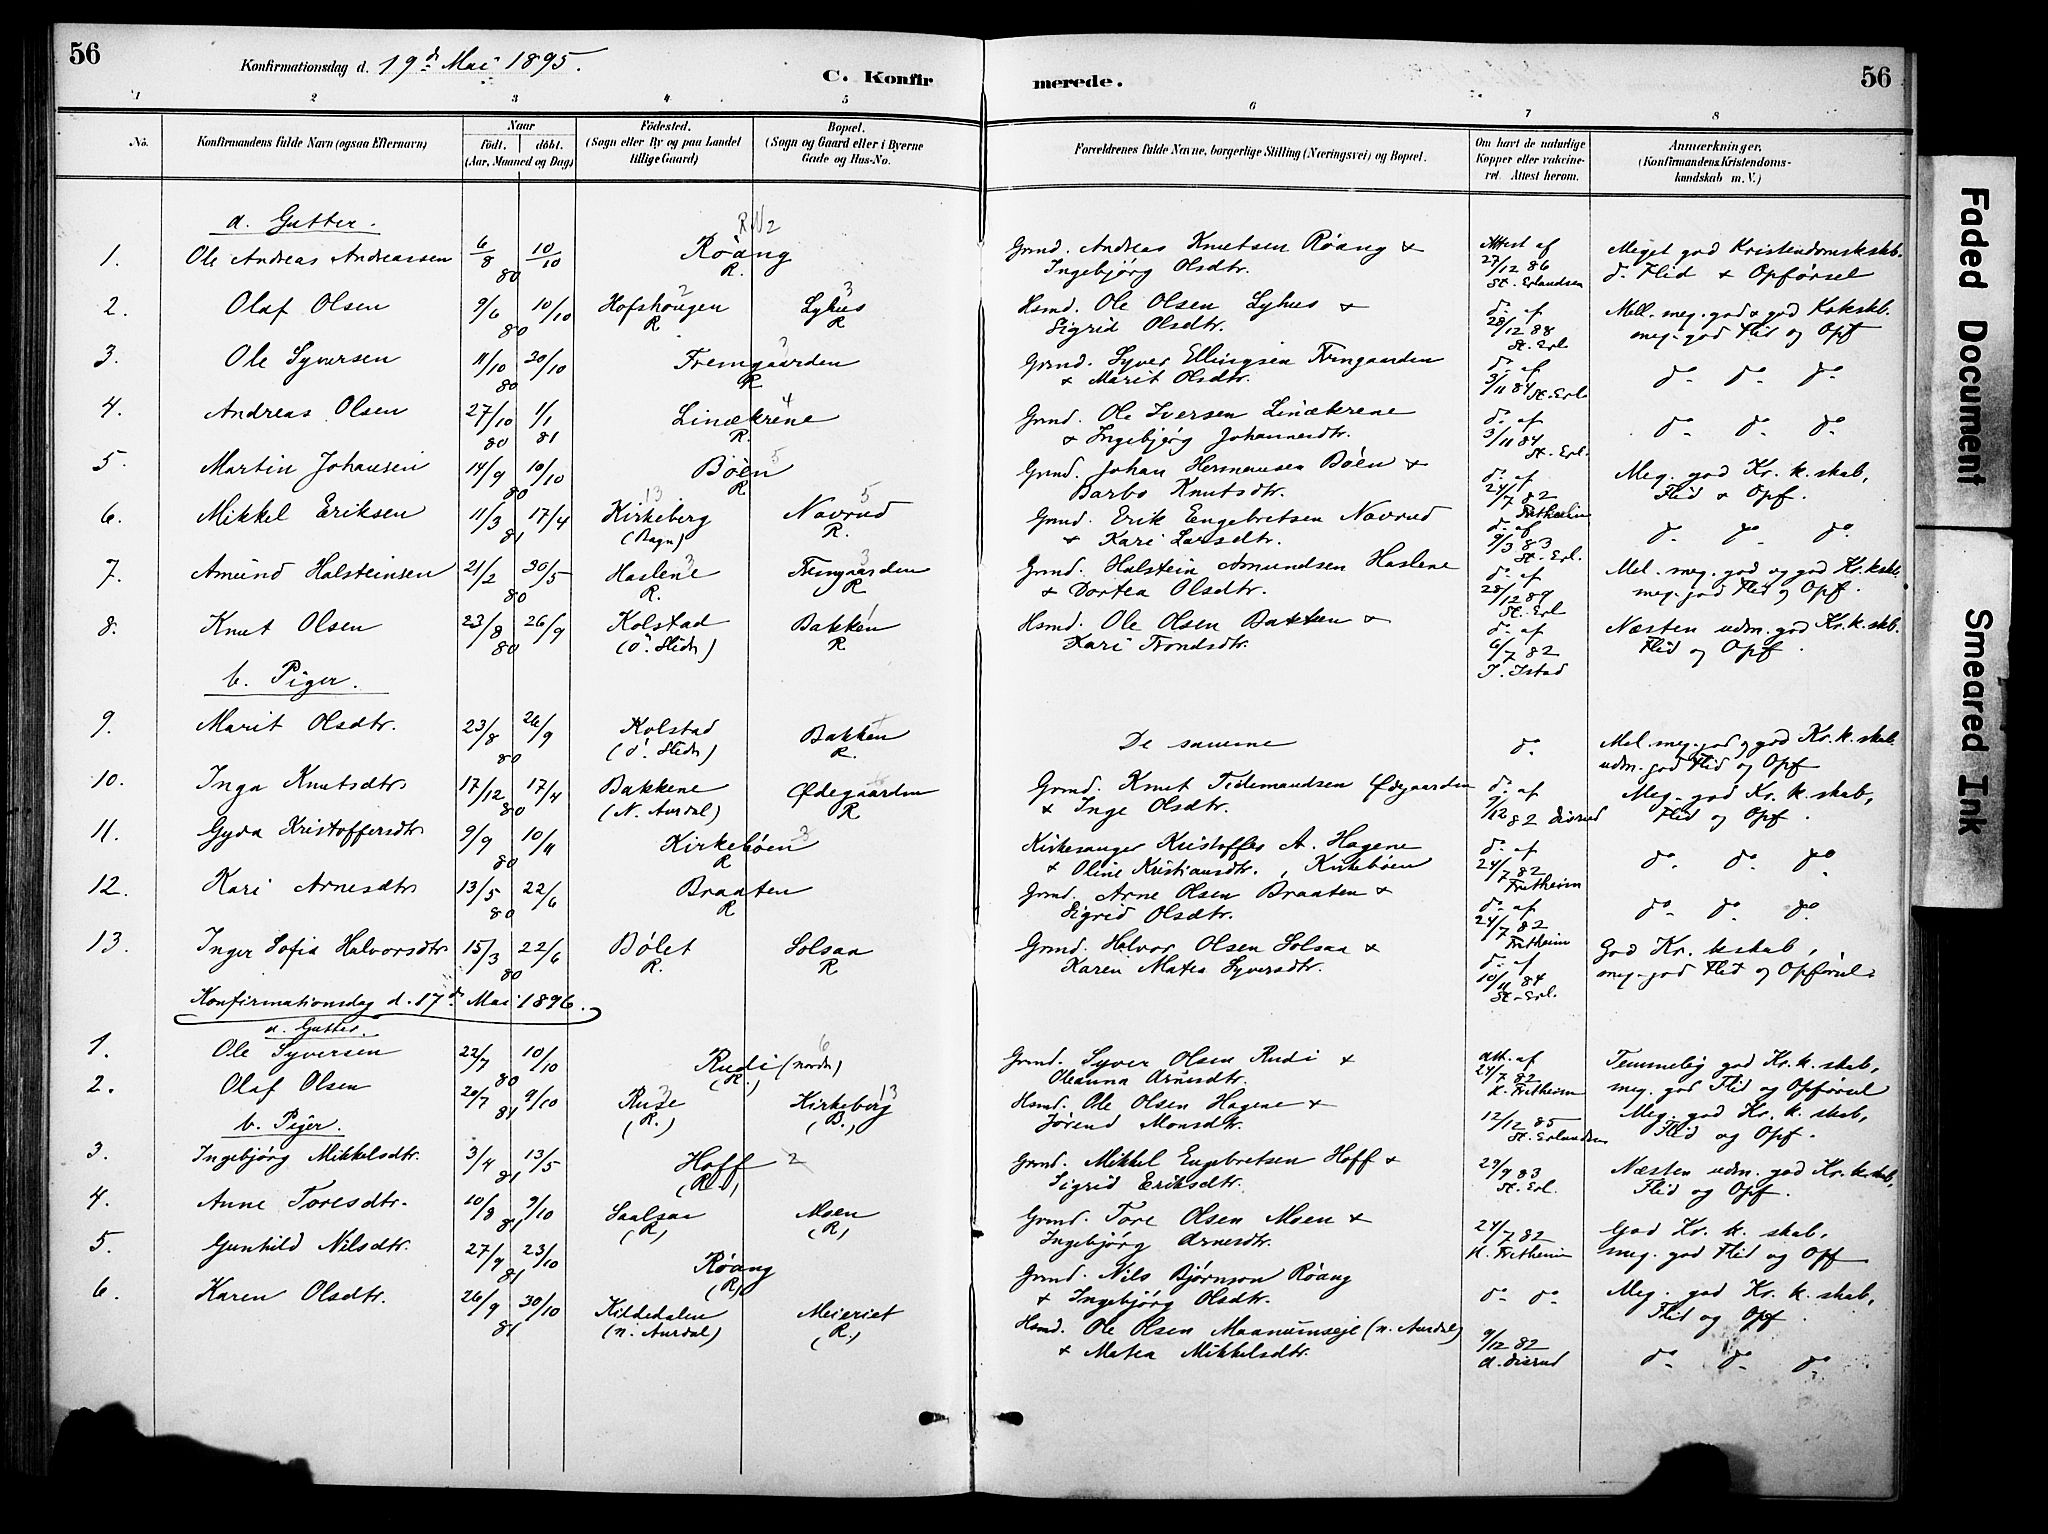 56
Konfirmationsdag d. 19d Mai 1895.
C. Konfir
1 2 3 4 5
No.
Konfirmandens fulde Navn (ogsaa Efternavn)
Naar
födt. döbt.
(Aar, Maaned og Dag)
Födested.
(Sogn eller By og paa Landet tillige Gaard)
Bopæl.
(Sogn og Gaard eller i Byerne Gade og Hus-No.
a. Gutter.
1. Ole Andreas Andreassen 6/8 80 10/10 Röang R.
2. Olaf Olsen 9/6 80 10/10 Hofshougen R Lyhus R
3. Ole Syversen 11/10 80 20/10 Fremgaarden R
4. Andreas Olsen 27/10 80 1/1 81 Linækrene R.
5. Martin Johansen 14/9 80 10/10 Böen R
6. Mikkel Eriksen 11/3 81 17/4 Kirkeberg (Bagn) Navrud R.
7. Amund Halsteinsen 21/2 80 30/5 Haslene R. Fremgaarden R
8. Knut Olsen 23/8 80 26/9 Kolstad (Ö. Slidr) Bakken R
b. Piger.
9. Marit Olsdtr. 23/8 80 26/9 Kolstad (Ö. Slidr) Bakken R.
10. Inga Knutsdtr 17/12 80 17/4 Bakkene (N. Aurdal) Ødegaarden R
11. Gyda Kristoffersdtr 9/9 80 10/11 Kirkeböen R
12. Kari Arnesdtr 13/5 80 22/6 Braaten R
13. Inger Sofia Halvorsdtr 15/3 80 22/6 Bölet R. Solsaa R
Konfirmationsdag d. 17d Mai 1896.
a. Gutter.
1. Ole Syversen 22/7 80 10/10 Rudi (nordr) (R.)
2. Olaf Olsen 20/7 81 9/10 Ruse (R.) Kirkeberg (B.)
b. Piger.
3. Ingebjörg Mikkelsdtr. 3/4 81 13/5 Hoff (R.)
4. Anne Toresdtr. 10/8 81 9/10 Saalsaa (R) Moen (R)
5. Gunhild Nilsdtr. 27/9 81 23/10 Röang (R)
6. Karen Olsdtr. 26/9 81 30/10 Kildedalen (n. Aurdal) Meieriet (R.)
merede.
56
6 7 8
Forældrenes fulde Navne, borgerlige Stilling (Næringsvei) og Bopæl.
Om havt de naturlige Kopper eller vakcineret. Attest herom.
Anmærkninger.
(Konfirmandens Kristendomskundskab m. V.)
Grmd. Andreas Knutsen Röang & Attest af Meget god Kristendomskskb.
Ingebjörg Olsdtr. 27/12 86 St. Erlandsen do. Flid & Opförsel
Hsmd. Ole Olsen Lyhus & do. af Mell. meg. god & god
Sigrid Olsdtr. 28/12 88 St. Erl meg. god Flid og Opf
Grmd. Syver Ellingsen Fremgaarden do. af
& Marit Olsdtr. 3/11 84 St. Erl. do. do. do.
Grmd. Ole Iversen Linækrene do. af
& Ingebjörg Johannesdtr. 3/11 84 St. Erl. do. do. do.
Grmd. Johan Hermansen Böen & do. af Meg. god Kr. k. skab,
Barbo Knutsdtr. 24/7 82 Fretheim Flid & Opf.
Grmd. Erik Engebretsen Navrud do. af
& Kari Larsdtr. 9/3 83 St. Erl. do. do. do.
Grmd. Halstein Amundsen Haslene do. af Mel. meg. god og god Kr. kskb.
& Dortea Olsdtr. 28/12 89 St. Erl meg. god Flid og Opf.
Hsmd. Ole Olsen Bakken & do. af Næsten udm. god Kr. k. skb.
Kari Trondsdtr. 6/7 82 J. Istad Flid og Opf.
De samme do. Mel. meg. god og god Kr. k. skab
udm. god Flid og Opf
Grmd. Knut Tidemandsen Ødegaarden do. af Meg. god Kr. k. skab,
& Inge Olsdtr. 9/12 82 Disrud Flid og Opf.
Kirkesanger Kristoffer A. Hagene do. af
& Oline Kristiansdtr., Kirkeböen 24/7 82 Fretheim do. do. do.
Grmd. Arne Olsen Braaten & do. af
Sigrid Olsdtr. 24/7 82 Fretheim do. do. do.
Grmd. Halvor Olsen Solsaa & do. af God Kr. kskab,
Karen Matea Syversdtr. 10/11 84 St. Erl. meg. god Flid og Opförsel.
Grmd. Syver Olsen Rudi & att. af Temmelig god Kr. k. skab,
Oleanna Arnesdtr. 24/7 82 K. Fretheim meg. god Flid og Opförsel
Hsmd. Ole Olsen Hagene & Meg. god Kr. k. skab,
Jörend Monsdtr. 12/12 85 St. Erlandsen Flid og Opf.
Grmd. Mikkel Engebretsen Hoff & 29/9 83 Næsten udm. god Kr. k. skab,
Sigrid Eriksdtr. St. Erl. Flid og Opf.
Grmd. Tore Olsen Moen & 24/7 82 God Kr. k. skab,
Ingebjörg Arnesdtr. K. Fretheim meg. god Flid og Opf
Grmd. Nils Björnson Röang Meg. god Kr. k. skab,
& Ingebjörg Olsdtr. do. do. Flid og Opf.
Hsmd. Ole Olsen Maanumseje (n. Aurdal) 9/12 82
& Matea Mikkelsdtr. A. Disrud do. do. do.
Faded Document
Smeared Ink